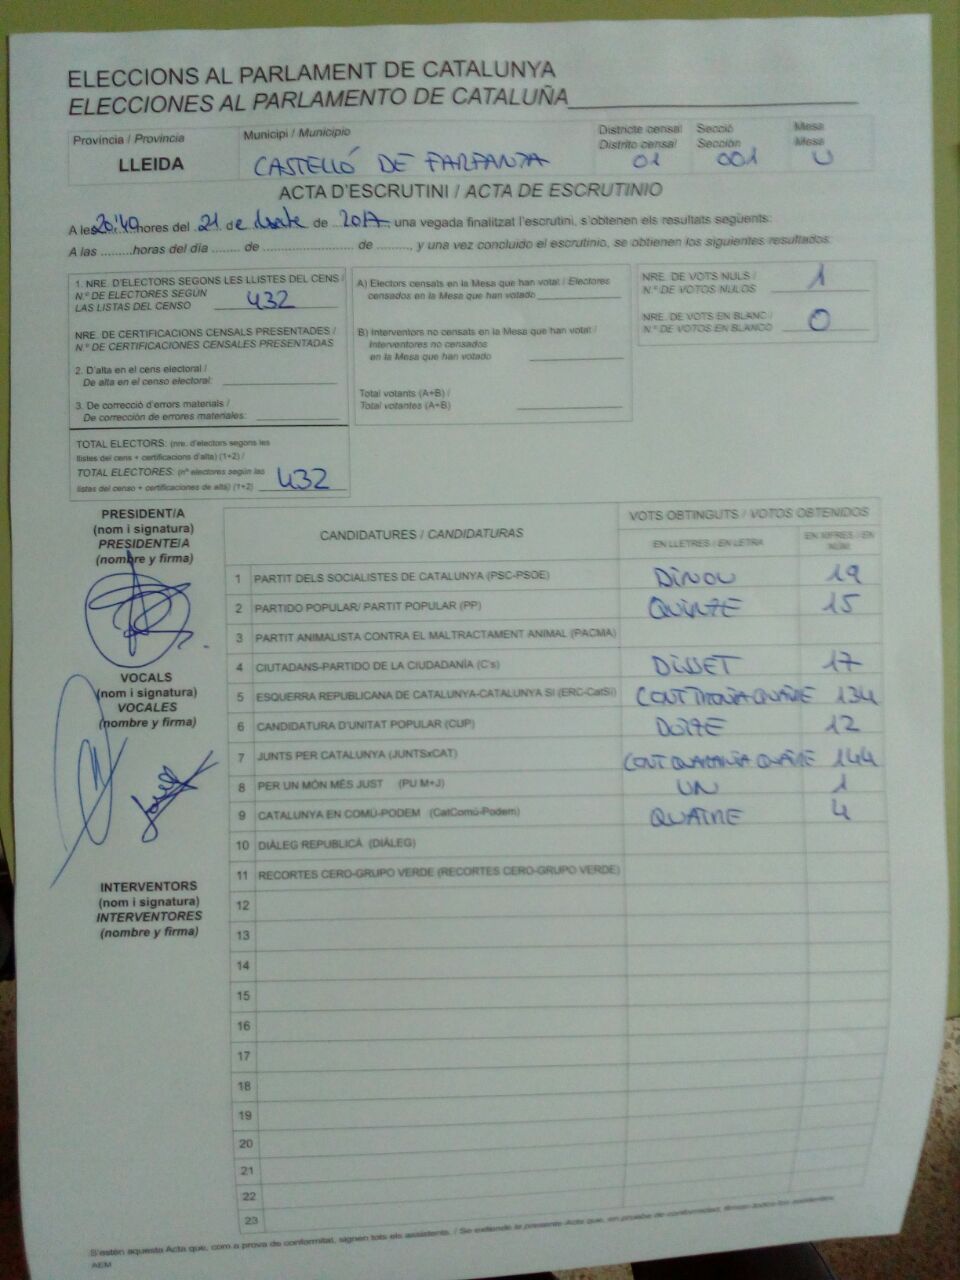 ELECCIONS AL PARLAMENT DE CATALUNYA
ELECCIONES AL PARLAMENTO DE CATALUÑA
Província / Provincia
LLEIDA
Municipi / Municipio
CASTELLÓ DE FARFANYA
Districte censal
Distrito censal
01
Secció
Sección
001
Mesa
Mesa
U
ACTA D'ESCRUTINI / ACTA DE ESCRUTINIO
A les 20:40 hores del 21 de de 2017 una vegada finalitzat l'escrutini, s'obtenen els resultats següents:
A las .........horas del día ........ de ............................ de ..........., y una vez concluido el escrutinio, se obtienen los siguientes resultados:
1. NRE. D'ELECTORS SEGONS LES LLISTES DEL CENS /
N.º DE ELECTORES SEGÚN
LAS LISTAS DEL CENSO 432
NRE. DE CERTIFICACIONS CENSALS PRESENTADES /
N.º DE CERTIFICACIONES CENSALES PRESENTADAS
2. D'alta en el cens electoral /
De alta en el censo electoral:
3. De correcció d'errors materials /
De corrección de errores materiales:
TOTAL ELECTORS: (nre. d'electors segons les
llistes del cens + certificacions d'alta) (1+2) /
TOTAL ELECTORES: (nº electores según las
listas del censo + certificaciones de alta) (1+2) 432
A) Electors censats en la Mesa que han votat / Electores
censados en la Mesa que han votado
B) Interventors no censats en la Mesa que han votat /
Interventores no censados
en la Mesa que han votado
Total votants (A+B) /
Total votantes (A+B)
NRE. DE VOTS NULS /
N.º DE VOTOS NULOS 1
NRE. DE VOTS EN BLANC /
N.º DE VOTOS EN BLANCO 0
PRESIDENT/A
(nom i signatura)
PRESIDENTE/A
(nombre y firma)
VOCALS
(nom i signatura)
VOCALES
(nombre y firma)
INTERVENTORS
(nom i signatura)
INTERVENTORES
(nombre y firma)
CANDIDATURES / CANDIDATURAS
VOTS OBTINGUTS / VOTOS OBTENIDOS
EN LLETRES / EN LETRA
EN XIFRES / EN NÚM.
1 PARTIT DELS SOCIALISTES DE CATALUNYA (PSC-PSOE) DINOU 19
2 PARTIDO POPULAR/ PARTIT POPULAR (PP) QUINZE 15
3 PARTIT ANIMALISTA CONTRA EL MALTRACTAMENT ANIMAL (PACMA)
4 CIUTADANS-PARTIDO DE LA CIUDADANÍA (C's) DISSET 17
5 ESQUERRA REPUBLICANA DE CATALUNYA-CATALUNYA SÍ (ERC-CatSí) CENT TRENTA QUATRE 134
6 CANDIDATURA D'UNITAT POPULAR (CUP) DOTZE 12
7 JUNTS PER CATALUNYA (JUNTSxCAT) CENT QUARANTA QUATRE 144
8 PER UN MÓN MÉS JUST (PU M+J) UN 1
9 CATALUNYA EN COMÚ-PODEM (CatComú-Podem) QUATRE 4
10 DIÀLEG REPUBLICÀ (DIÀLEG)
11 RECORTES CERO-GRUPO VERDE (RECORTES CERO-GRUPO VERDE)
12
13
14
15
16
17
18
19
20
21
22
23
S'estén aquesta Acta que, com a prova de conformitat, signen tots els assistents. / Se extiende la presente Acta que, en prueba de conformidad, firman todos los asistentes.
AEM